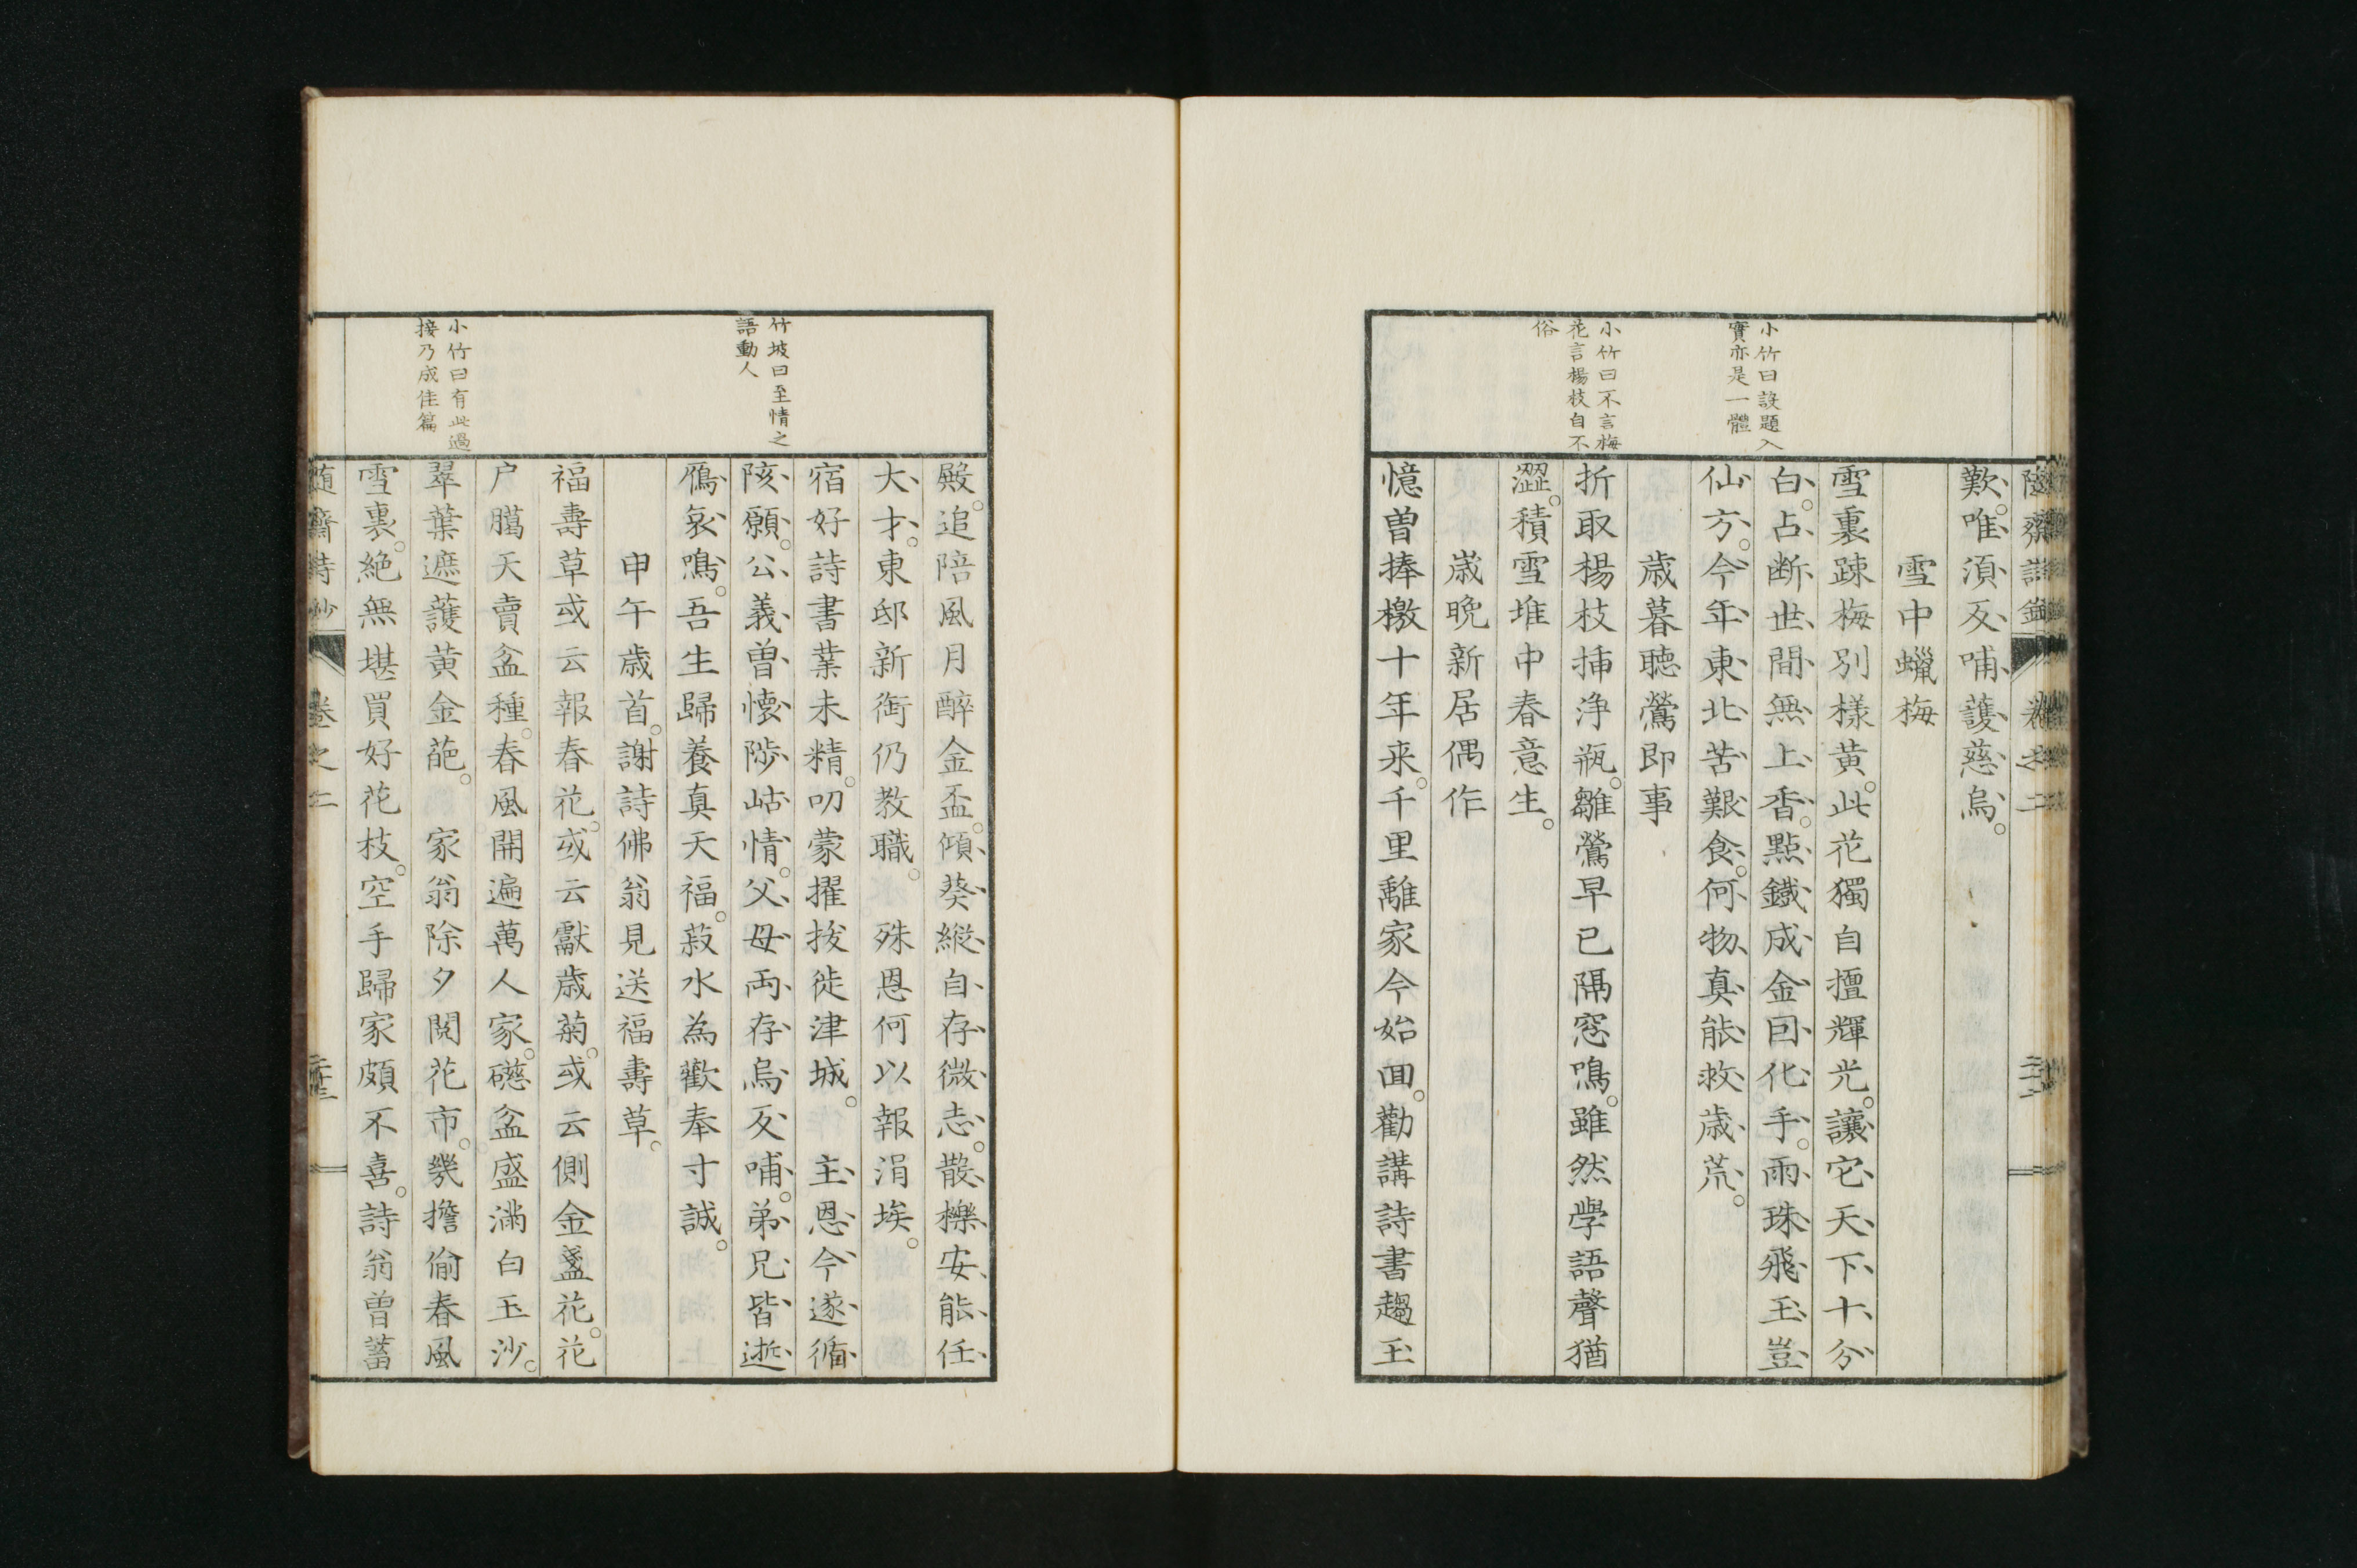 小竹曰設題入
實亦是一體
小竹曰不言梅
花言楊枝自不
俗
歎。唯須反哺護慈烏。
雪中蠟梅
雪裏疎梅別樣黃。此花獨自擅輝光。讓它天下十分
白。占断世間無上香。點鐵成金囙化手。雨珠飛玉豈
仙方。今年東北苦艱食。何物真能救歳荒。
歳暮聴鶯即事
折取楊枝揷浄瓶。雛鶯早已隔窓鳴。雖然學語聲猶
澀。積雪堆中春意生。
歳晩新居偶作
憶曽捧檄十年来。千里離家今始囬。勸講詩書趨玉
竹坡曰至情之
語動人
小竹曰有此過
接乃成佳篇
殿。追陪風月醉金盃。傾葵縱自存微志。散櫟安能任
大才。東邸新衘仍教職。殊恩何以報涓埃。
宿好詩書業未精。叨蒙擢拔徙津城。主恩今遂循
陔願。公義曽懐陟岵情。父母両存烏反哺。弟兄皆逝
鴈哀鳴。吾生歸養真天福。菽水為歡奉寸誠。
申午歳首。謝詩佛翁見送福壽草。
福壽草或云報春花。或云獻歳菊。或云側金盞花。花
户臈天賣盆種。春風開遍萬人家。磁盆盛満白玉沙。
翠葉遮護黃金葩。家翁除夕閲花市。幾擔偷春風
雪裏。絶無堪買好花枝。空手歸家頗不喜。詩翁曽蓄
随齋詩鈔 卷之二